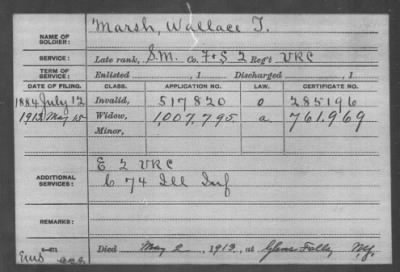 NAME OF SOLDIER: Marsh, Wallace T.
SERVICE: Late rank, S.M. Co. F+S 2 Reg't VRC
TERM OF SERVICE: Enlisted , 1 Discharged , 1
DATE OF FILING. CLASS. APPLICATION NO. LAW. CERTIFICATE NO.
1884 July 12 Invalid, 517820 285196
1912 May 15 Widow, 1,007,795 a 761,969
Minor,
ADDITIONAL SERVICES: E 2 VRC
C 74 Ill Inf
REMARKS:
Died May 2, 1912, at Glens Falls N.Y.